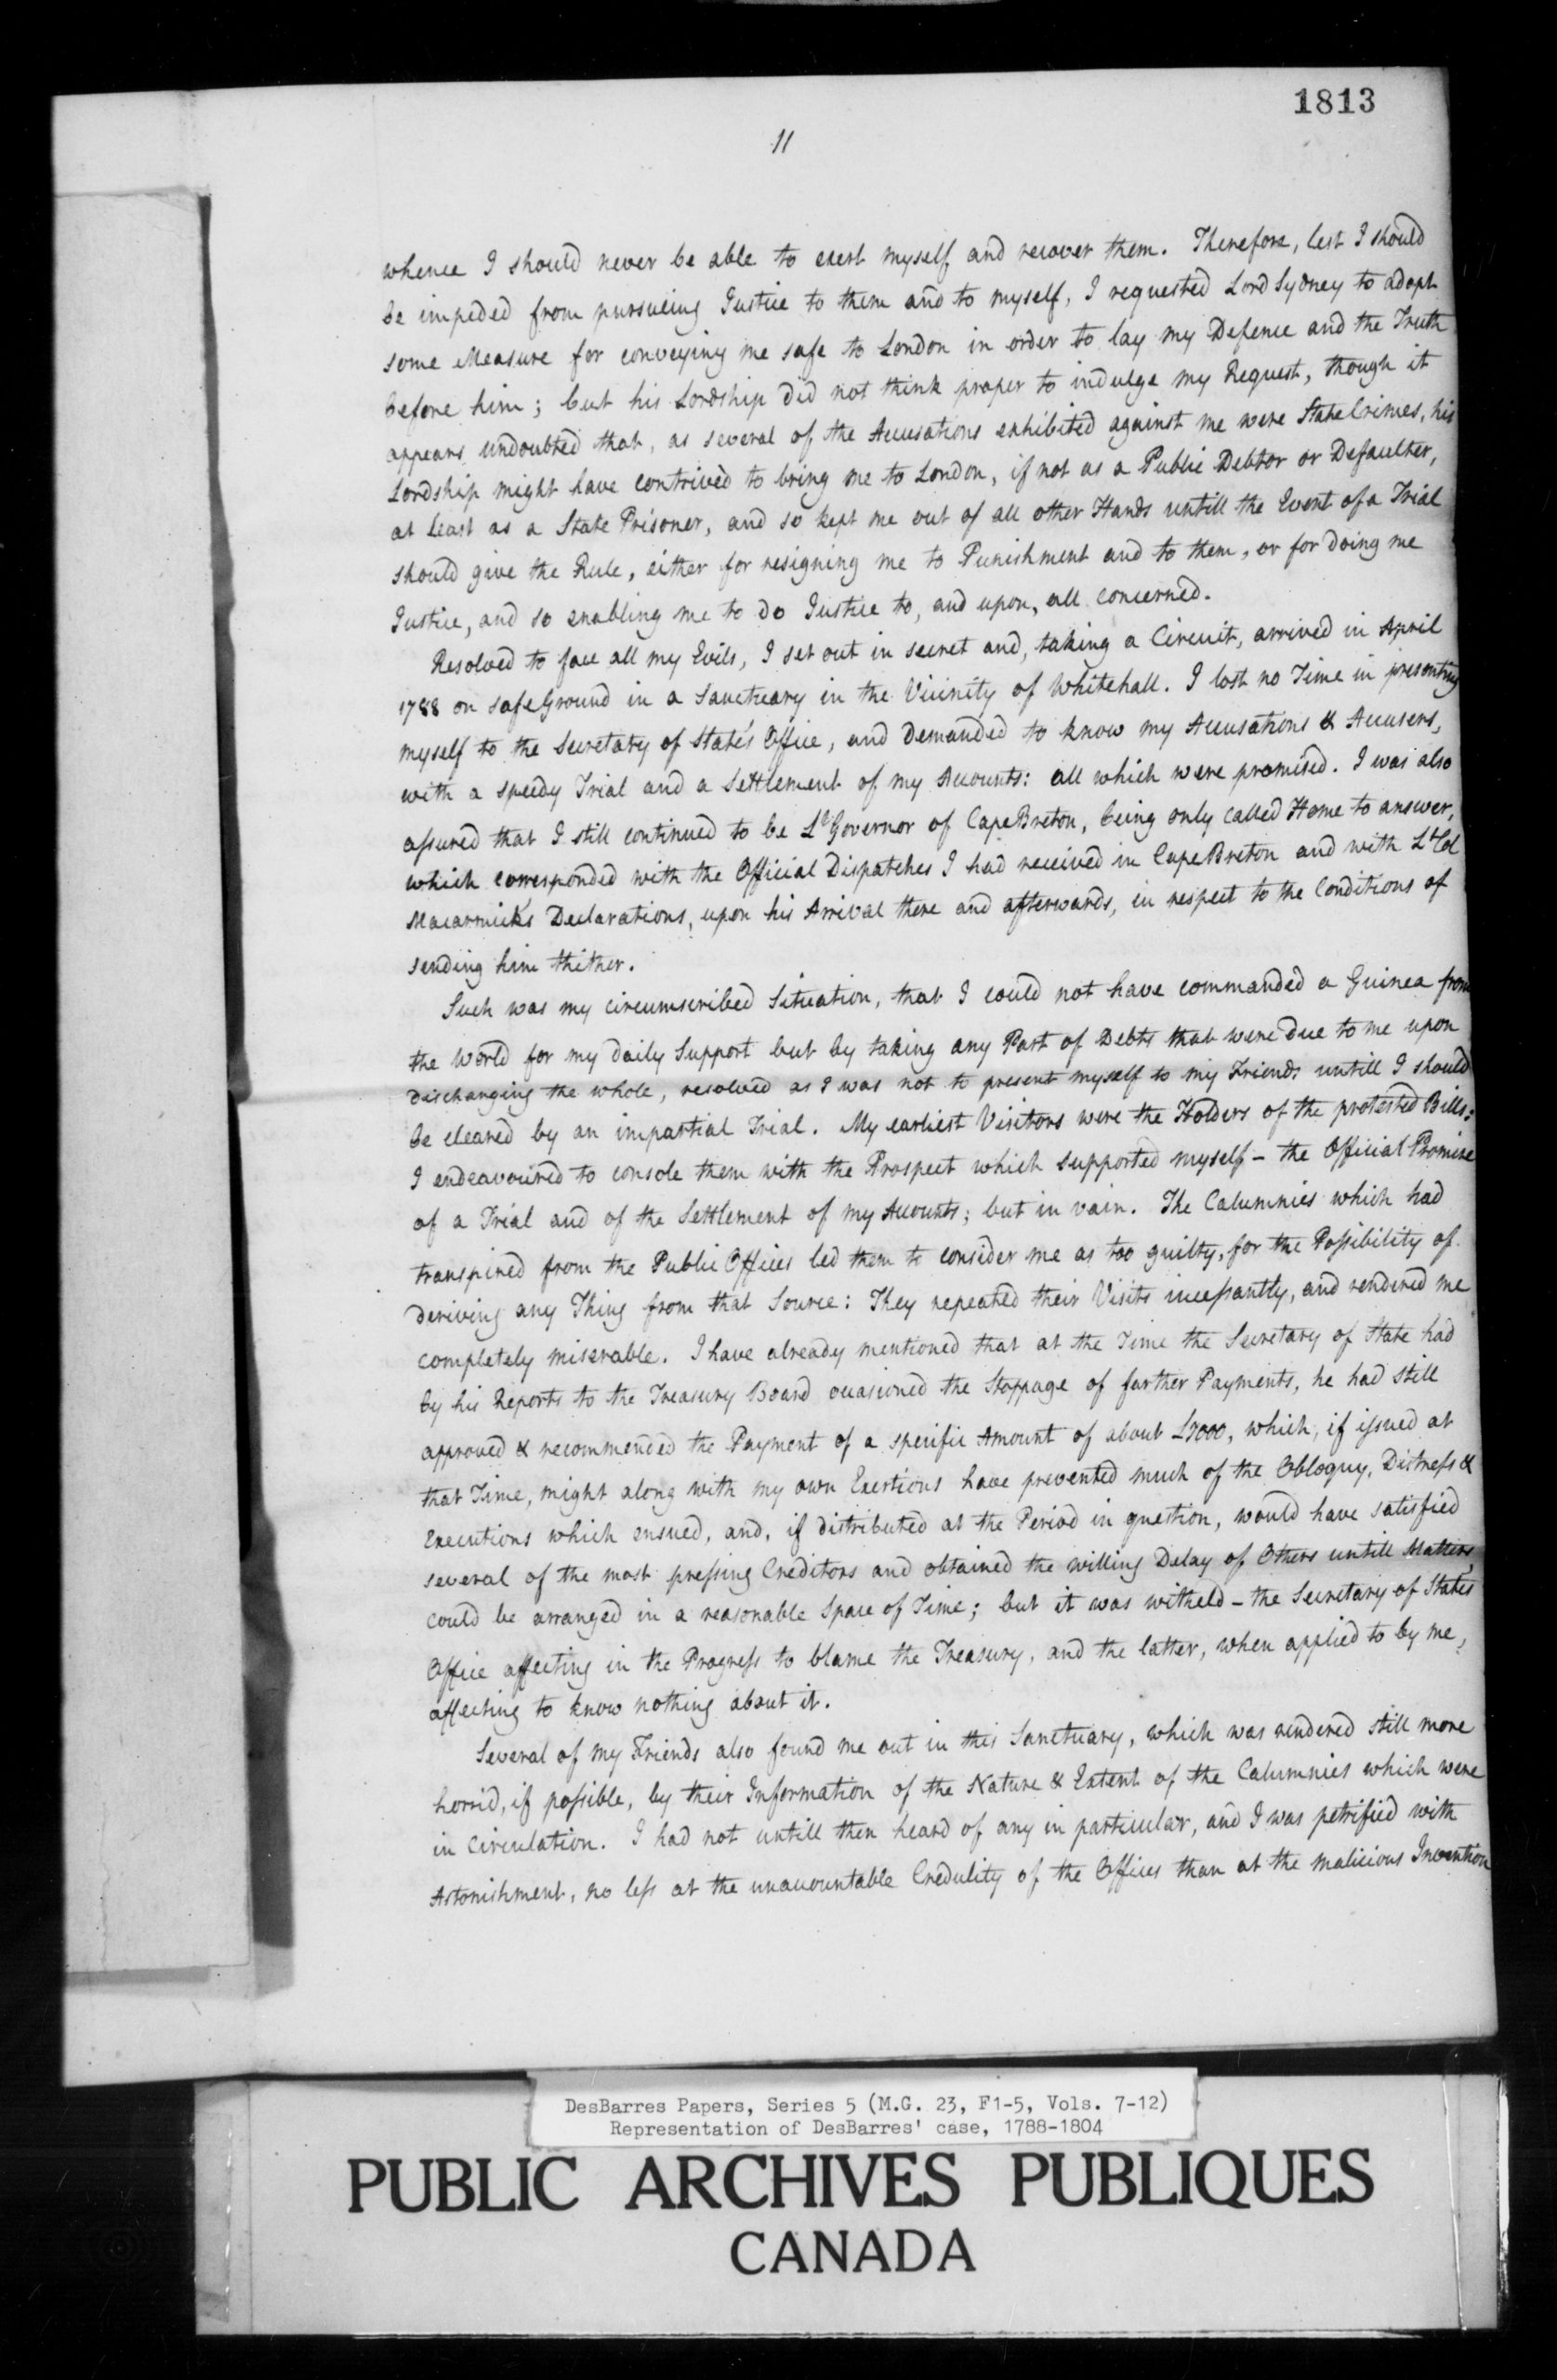 1813
11
whence I should never be able to exert myself and recover them. Therefore, lest I should
be impeded from pursueing Justice to them and to myself, I requested Lord Sydney to adopt
some Measure for conveying me safe to London in order to lay my Defence and the Truth
before him; but his Lordship did not think proper to indulge my Request, though it
appears undoubted that, as several of the Accusations exhibited against me were State Crimes, his
Lordship might have contrived to bring me to London, if not as a Public Debtor or Defaulter,
at least as a State Prisoner, and so kept me out of all other Hands untill the Event of a Trial
should give the Rule, either for resigning me to Punishment and to them, or for doing me
Justice, and so enabling me to do Justice to, and upon, all concerned.
Resolved to face all my Evils, I set out in secret and, taking a Circuit, arrived in April
1788 on safe Ground in a Sanctuary in the Vicinity of Whitehall. I lost no Time in presenting
myself to the Secretary of State's Office, and demanded to know my Accusations & Accusers,
with a speedy Trial and a Settlement of my Accounts: all which were promised. I was also
assured that I still continued to be Lt Governor of Cape Breton, being only called Home to answer,
which corresponded with the Official Dispatches I had received in Cape Breton and with Lt Col
Macarmick's Declarations, upon his Arrival there and afterwards, in respect to the Conditions of
sending him thither.
Such was my circumscribed Situation, that I could not have commanded a Guinea from
the World for my daily Support but by taking any Part of Debts that were due to me upon
discharging the whole, resolved as I was not to present myself to my Friends untill I should
be cleared by an impartial Trial. My earliest Visitors were the Holders of the protested Bills:
I endeavoured to console them with the Prospect which supported myself - the Official Promise
of a Trial and of the Settlement of my Accounts; but in vain. The Calumnies which had
transpired from the Public Offices led them to consider me as too guilty, for the Possibility of
deriving any Thing from that Source: They repeated their Visits incessantly, and rendered me
completely miserable. I have already mentioned that at the Time the Secretary of State had
by his Reports to the Treasury Board occasioned the Stoppage of further Payments, he had still
approved & recommended the Payment of a specific Amount of about £7000, which, if issued at
that Time, might along with my own Exertions have prevented much of the Obloquy, Distress &
Executions which ensued, and, if distributed at the Period in question, would have satisfied
several of the most pressing Creditors and obtained the willing Delay of Others untill Matters
could be arranged in a reasonable Space of Time; but it was witheld - the Secretary of States
Office affecting in the Progress to blame the Treasury, and the latter, when applied to by me,
affecting to know nothing about it.
Several of my Friends also found me out in this Sanctuary, which was rendered still more
horrid, if possible, by their Information of the Nature & Extent of the Calumnies which were
in circulation. I had not untill then heard of any in particular, and I was petrified with
Astonishment, no less at the unaccountable Credulity of the Offices than at the malicious Invention
DesBarres Papers, Series 5 (M.G. 23, F1-5, Vols. 7-12)
Representation of DesBarres' case, 1788-1804
PUBLIC ARCHIVES PUBLIQUES
CANADA